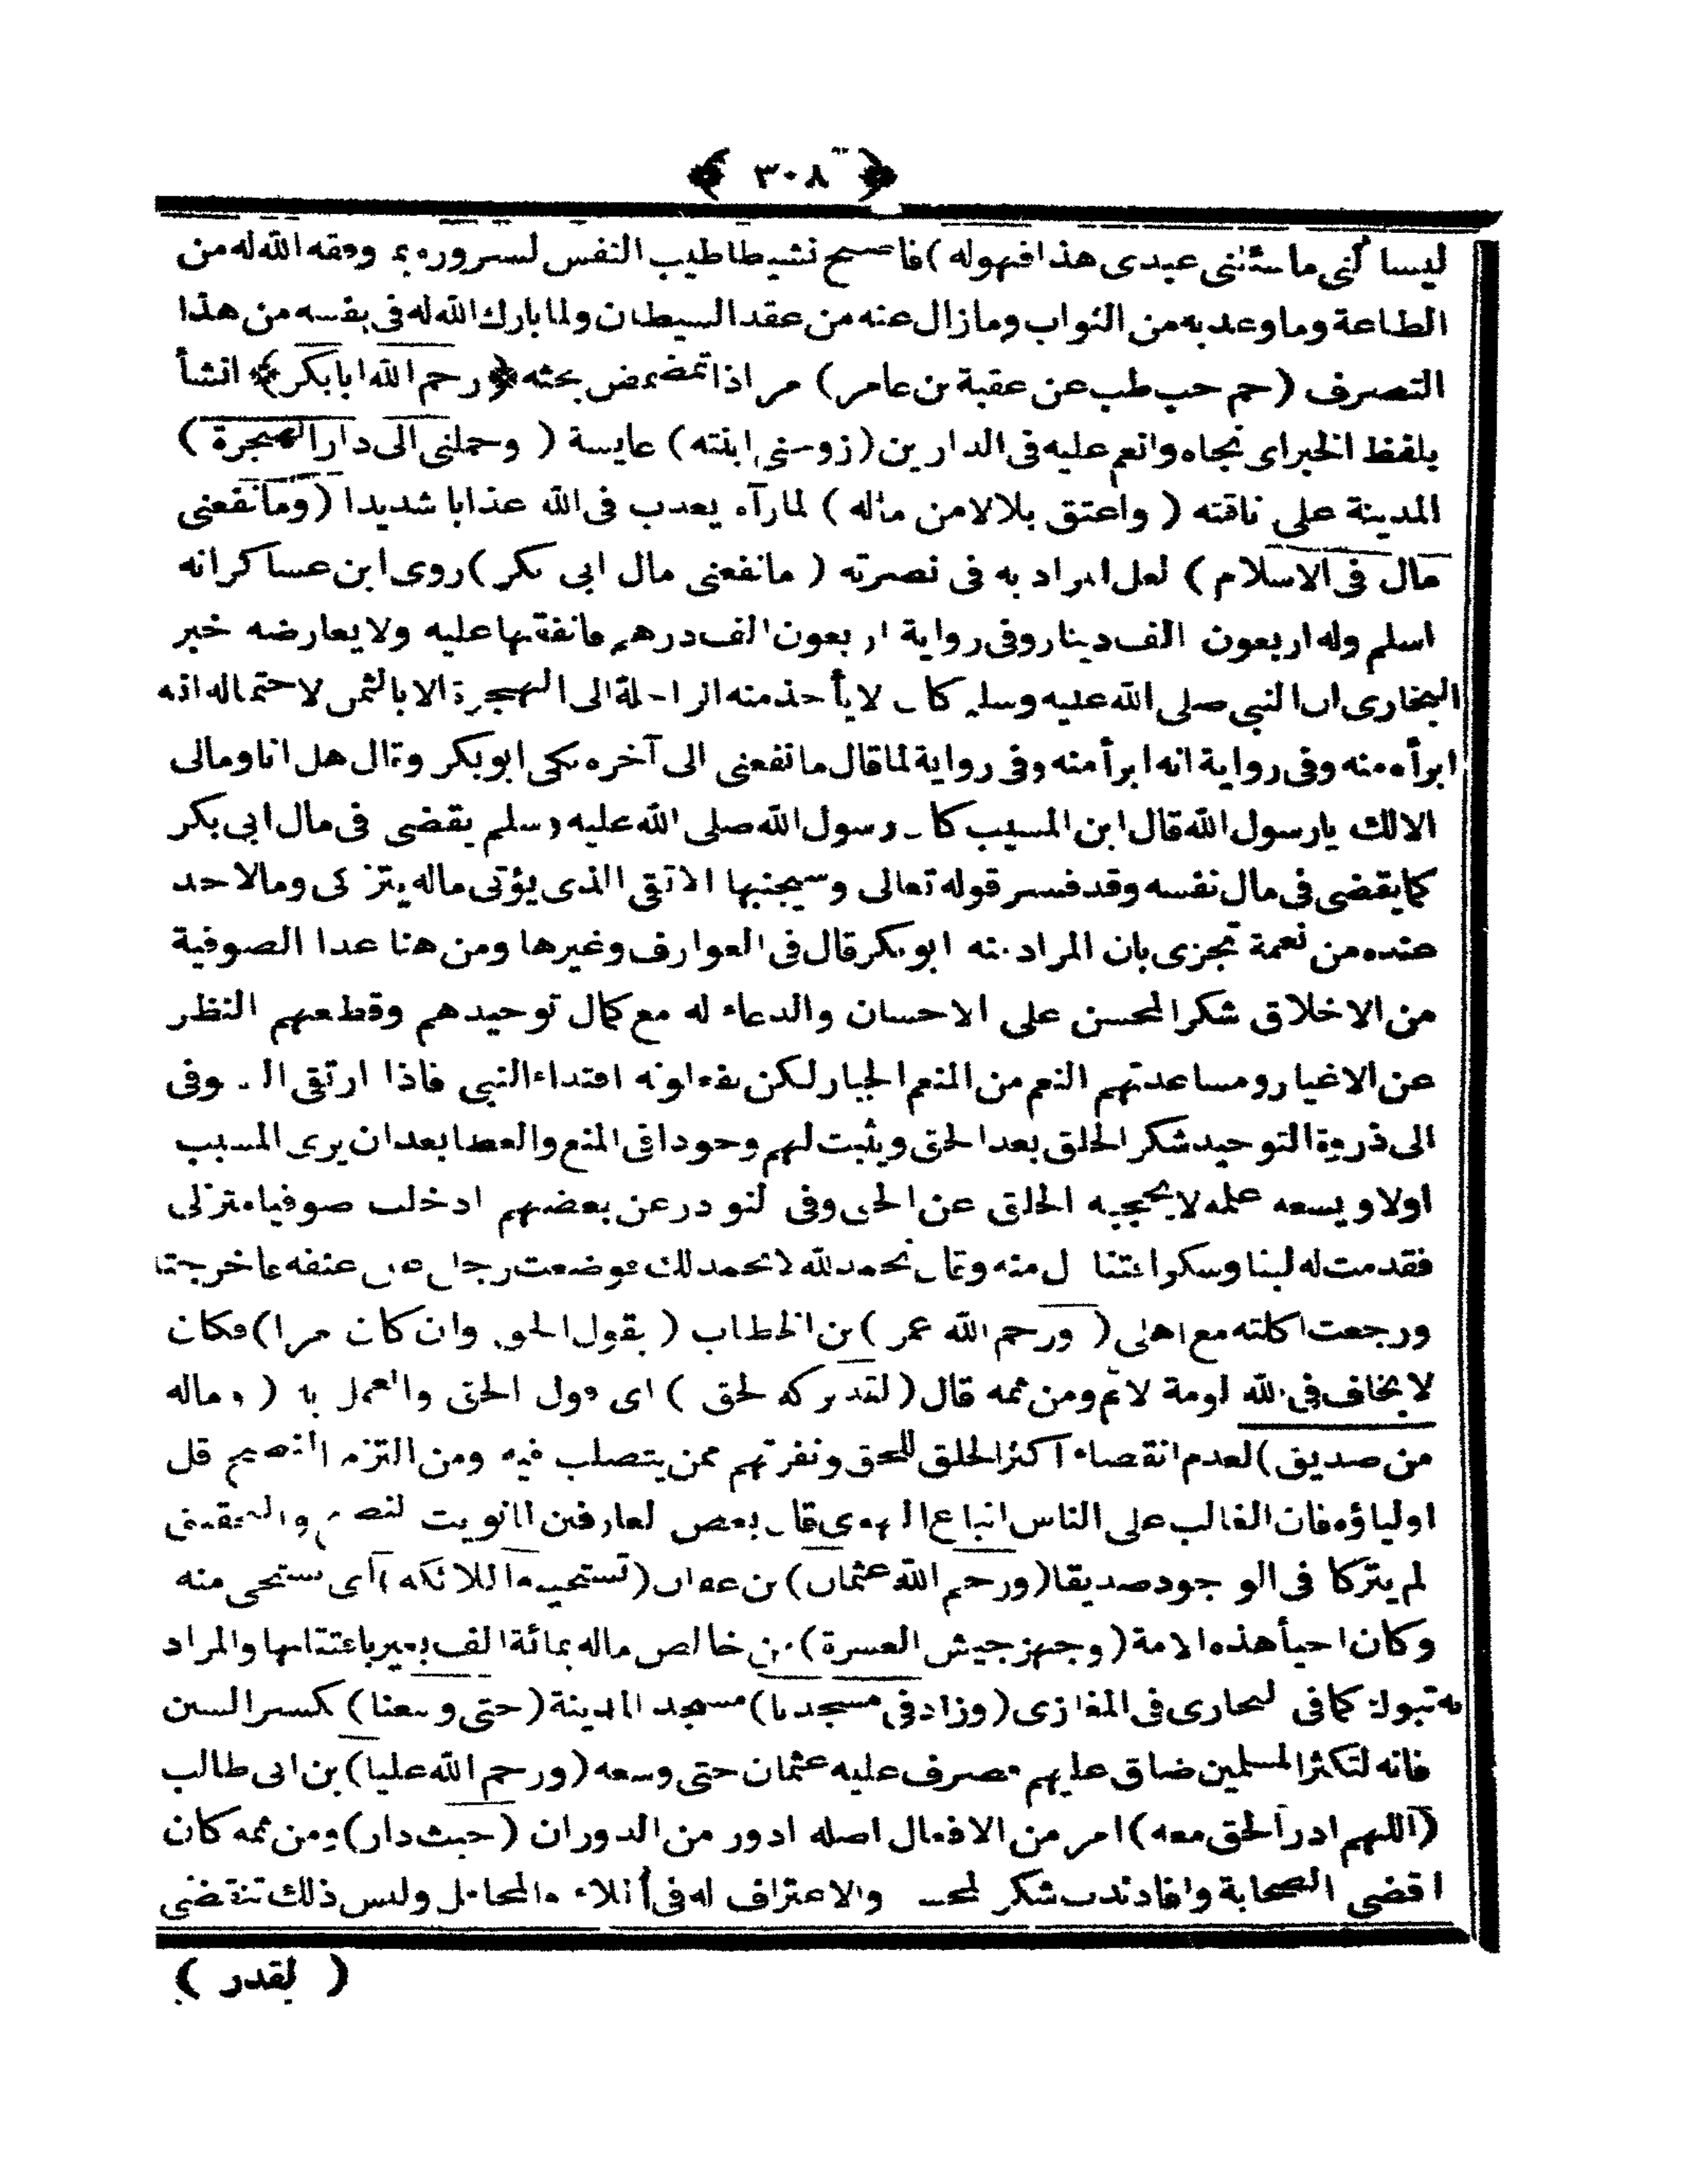 ﴿ ٣٠٨ ﴾
ليسأ لنى ماسئلنى عبدى هذا فهوله ) فاصبح نشيطا طيب النفس لسروره بما وفقه الله له من
الطاعة وما وعد به من الثواب وما زال عنه من عقد الشيطان ولما بارك الله له فى نفسه من هذا
التصرف ( حم حب طب عن عقبة بن عامر ) مر اذا تمضمض بحثه ﴿ رحم الله ابابكر ﴾ انشأ
بلفظ الخبر اى نجاه وانعم عليه فى الدارين ( زوجنى ابنته ) عايسة ( وحملنى الى دار الهجرة )
المدينة على ناقته ( واعتق بلالا من ماله ) لما رآه يعذب فى الله عذابا شديدا ( وما نفعنى
مال فى الاسلام ) لعل المراد به فى نصرته ( ما نفعنى مال ابى بكر ) روى ابن عساكر انه
اسلم وله اربعون الف دينار وفى رواية اربعون الف درهم فانفقها عليه ولا يعارضه خبر
البخارى ان النبى صلى الله عليه وسلم كان لا يأخذ منه الراحلة الى الهجرة الا بالثمن لاحتماله انه
ابرأه منه وفى رواية انه ابرأ منه وفى رواية لما قال ما نفعنى الى آخره بكى ابو بكر وقال هل انا ومالى
الا لك يا رسول الله قال ابن المسيب كان رسول الله صلى الله عليه وسلم يقضى فى مال ابى بكر
كما يقضى فى مال نفسه وقد فسر قوله تعالى وسيجنبها الاتقى الذى يؤتى ماله يتزكى وما لاحد
عنده من نعمة تجزى بان المراد منه ابو بكر قال فى العوارف وغيرها ومن هنا عدا الصوفية
من الاخلاق شكر المحسن على الاحسان والدعاء له مع كمال توحيدهم وقطعهم النظر
عن الاغيار ومساعدتهم النعم من المنعم الجبار لكن يفعلونه اقتداء النبى فاذا ارتقى الصوفى
الى ذروة التوحيد شكر الخلق بعد الحق ويثبت لهم وجودا فى المنع والعطا بعد ان يرى المسبب
اولا ويسعه علمه لا يحجبه الخلق عن الحق وفى النوادر عن بعضهم ادخلت صوفيا منزلى
فقدمت له لبنا وسكرا فتناول منه وقال نحمد لله لا نحمد لك فوضعت رجلى على عنقه فاخرجته
ورجعت اكلته مع اهلى ( ورحم الله عمر ) بن الخطاب ( يقول الحق وان كان مرا ) فكان
لا يخاف فى الله لومة لائم ومن ثمه قال ( لقد تركه الحق ) اى قول الحق والعمل به ( وماله
من صديق ) لعدم انقصاء اكثر الخلق للحق ونفرتهم ممن يتصلب فيه ومن التزم النصح قل
اولياؤه فان الغالب على الناس اتباع الهوى قال بعض العارفين لما نويت النصح والتحقيق
لم يتركا فى الوجود صديقا ( ورحم الله عثمان ) بن عفان ( تستحييه الملائكة ) اى تستحى منه
وكان احيأ هذه الامة ( وجهز جيش العسرة ) من خالص ماله بمائة الف بعير باعتنائها والمراد
به تبوك كما فى البخارى فى المغازى ( وزاد فى مسجدنا ) مسجد المدينة ( حتى وسعنا ) بكسر السين
فانه لتكثر المسلمين ضاق عليهم فصرف عليه عثمان حتى وسعه ( ورحم الله عليا ) بن ابى طالب
( اللهم ادر الحق معه ) امر من الافعال اصله ادور من الدوران ( حيث دار ) ومن ثمه كان
اقضى الصحابة وافاد ندب شكر المحسن والاعتراف له فى الملاء والمحافل وليس ذلك تنقضى
( لقدر )